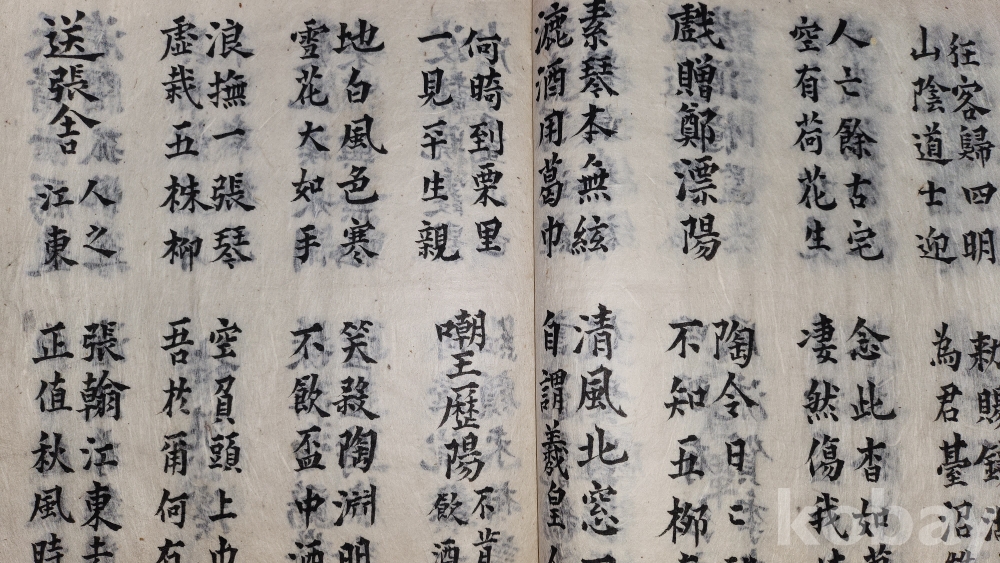 狂客歸四明
山陰道士迎
敕賜鏡
為君臺沼
人亡餘古宅
空有荷花生
念此杳如
凄然傷我
戲贈鄭漂陽
陶令日〻
不知五柳
素琴本無絃
漉酒用葛巾
清風北窓
自謂羲皇人
何時到栗里
一見平生親
嘲王歷陽不肯
飲酒
地白風色寒
雪花大如手
笑殺陶淵明
不飲盃中酒
浪撫一張琴
虛栽五株柳
空負頭上巾
吾於爾何有
送張舍人之
江東
張翰江東去
正值秋風時
kobay